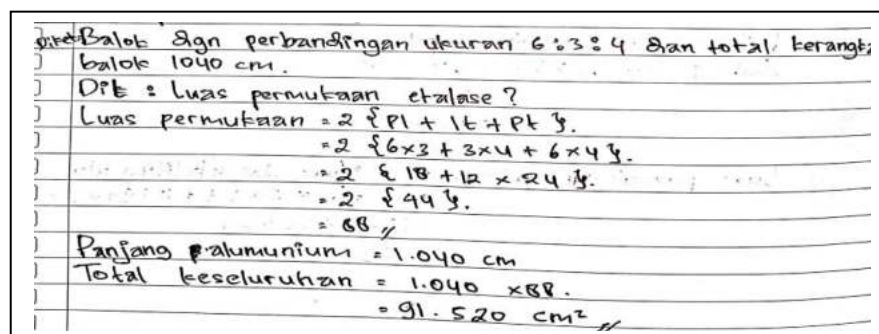 Diket Balok dgn perbandingan ukuran 6:3:4 dan total kerangka
balok 1040 cm.
Dit : Luas permukaan etalase?
Luas permukaan = 2 {Pl + lt + Pt}.
= 2 {6×3 + 3×4 + 6×4}.
= 2 {18 + 12 × 24}.
= 2 {44}.
= 88 //
Panjang alumunium = 1.040 cm
Total keseluruhan = 1.040 × 88.
= 91.520 cm² //